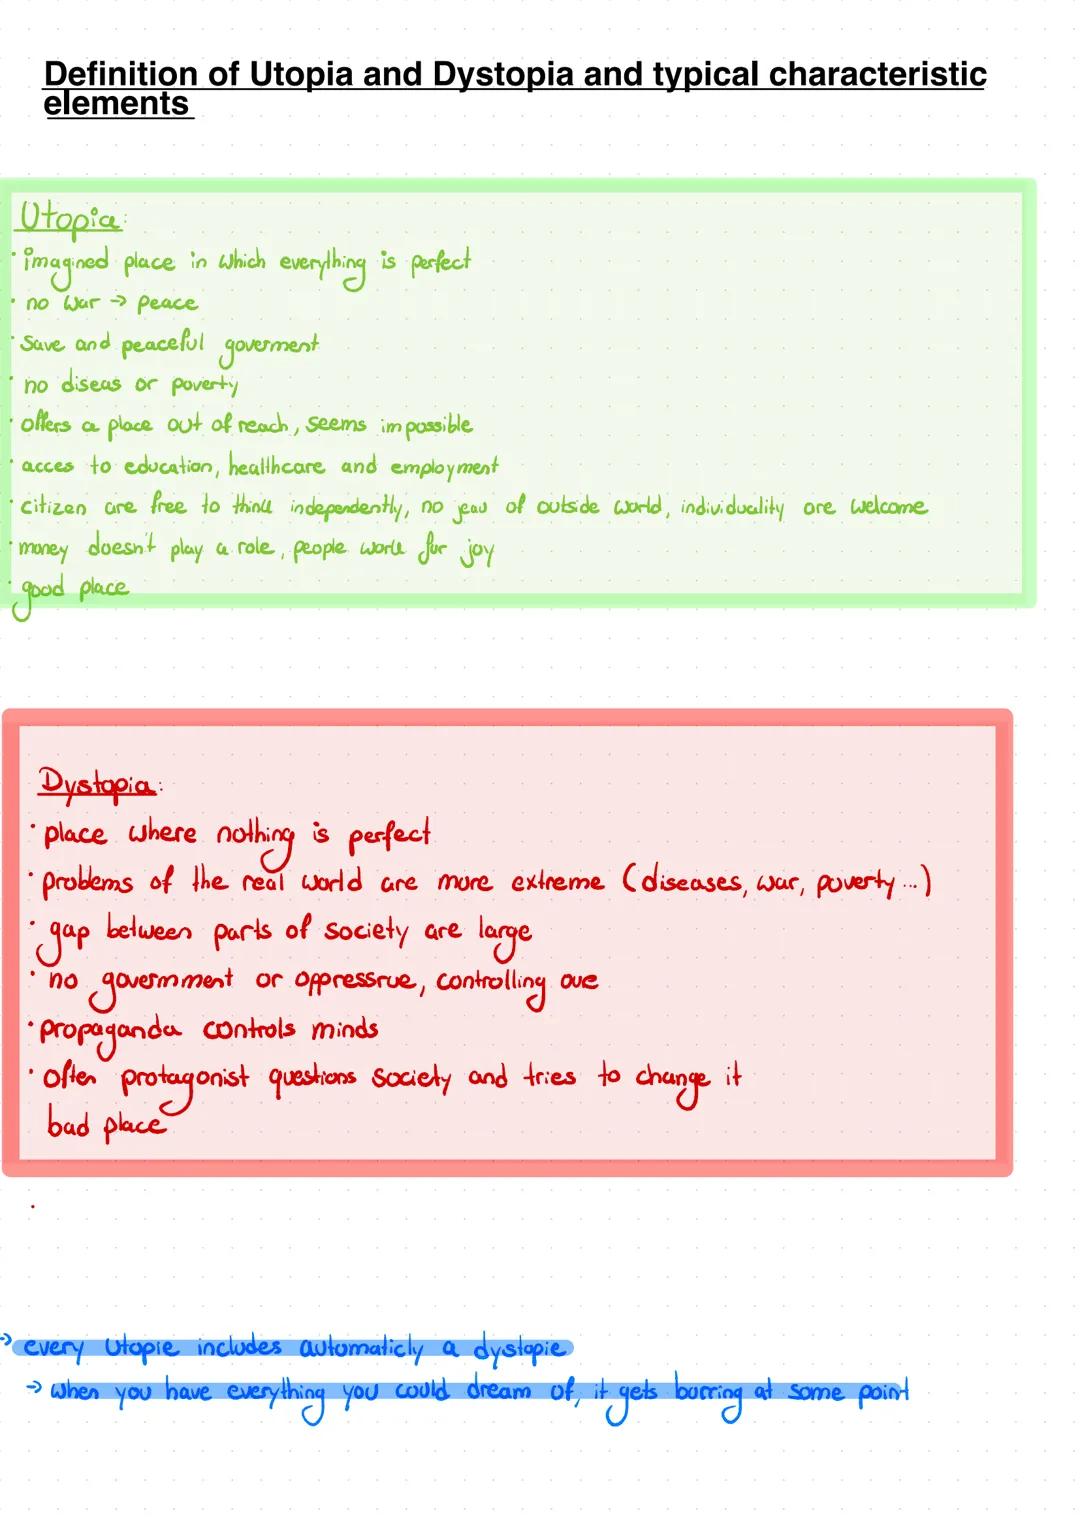 Definition of Utopia and Dystopia and typical characteristic
elements
Utopia:
· imagined place in which everything is perfect
· no war → peace
· save and peaceful goverment
· no diseas or poverty
· offers a place out of reach, seems impossible
· acces to education, healthcare and employment
· citizen are free to think independently, no of outside world, individuality are welcome
· money doesn't play a role, people work for joy
· good place
Dystopia:
· place where nothing is perfect
· problems of the real world are more extreme (diseases, war, poverty...)
· gap between parts of society are large
· no government or oppressrue, controlling oue
· propaganda controls minds
· often protagonist questions society and tries to change it
bad place
→ every Utopie includes automaticly a dystopie
→ when you have everything you could dream of, it gets borring at some point